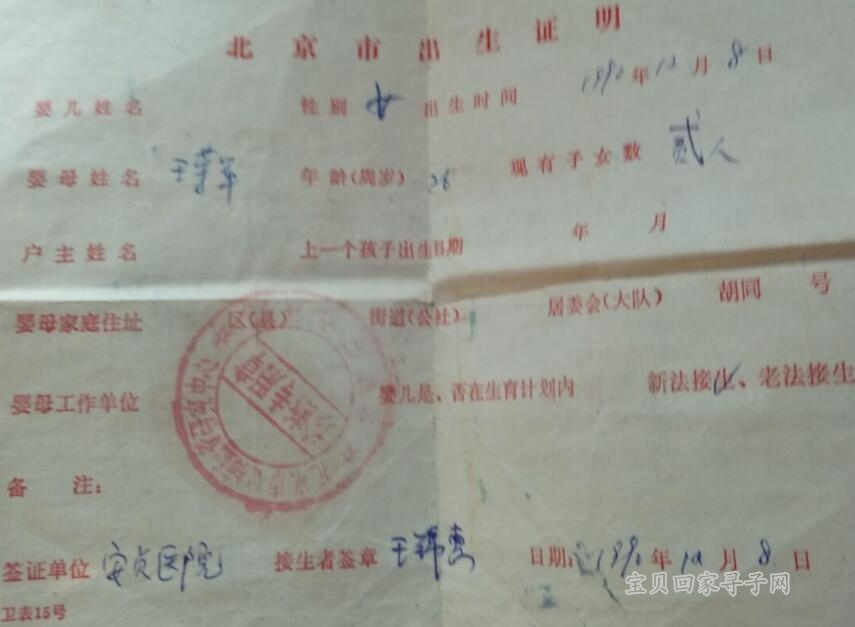 北京市出生证明
婴儿姓名 性别 女 出生时间 1990年12月8日
婴母姓名 年龄(周岁) 26 现有子女数 贰人
户主姓名 上一个孩子出生日期 年 月
婴母家庭住址 区(县) 街道(公社) 居委会(大队) 胡同 号
婴母工作单位 婴儿是、否在生育计划内 新法接生、老法接生
备 注:
签证单位 安贞医院 接生者签章 王 日期: 年 月 8 日
卫表15号
宝贝回家寻子网